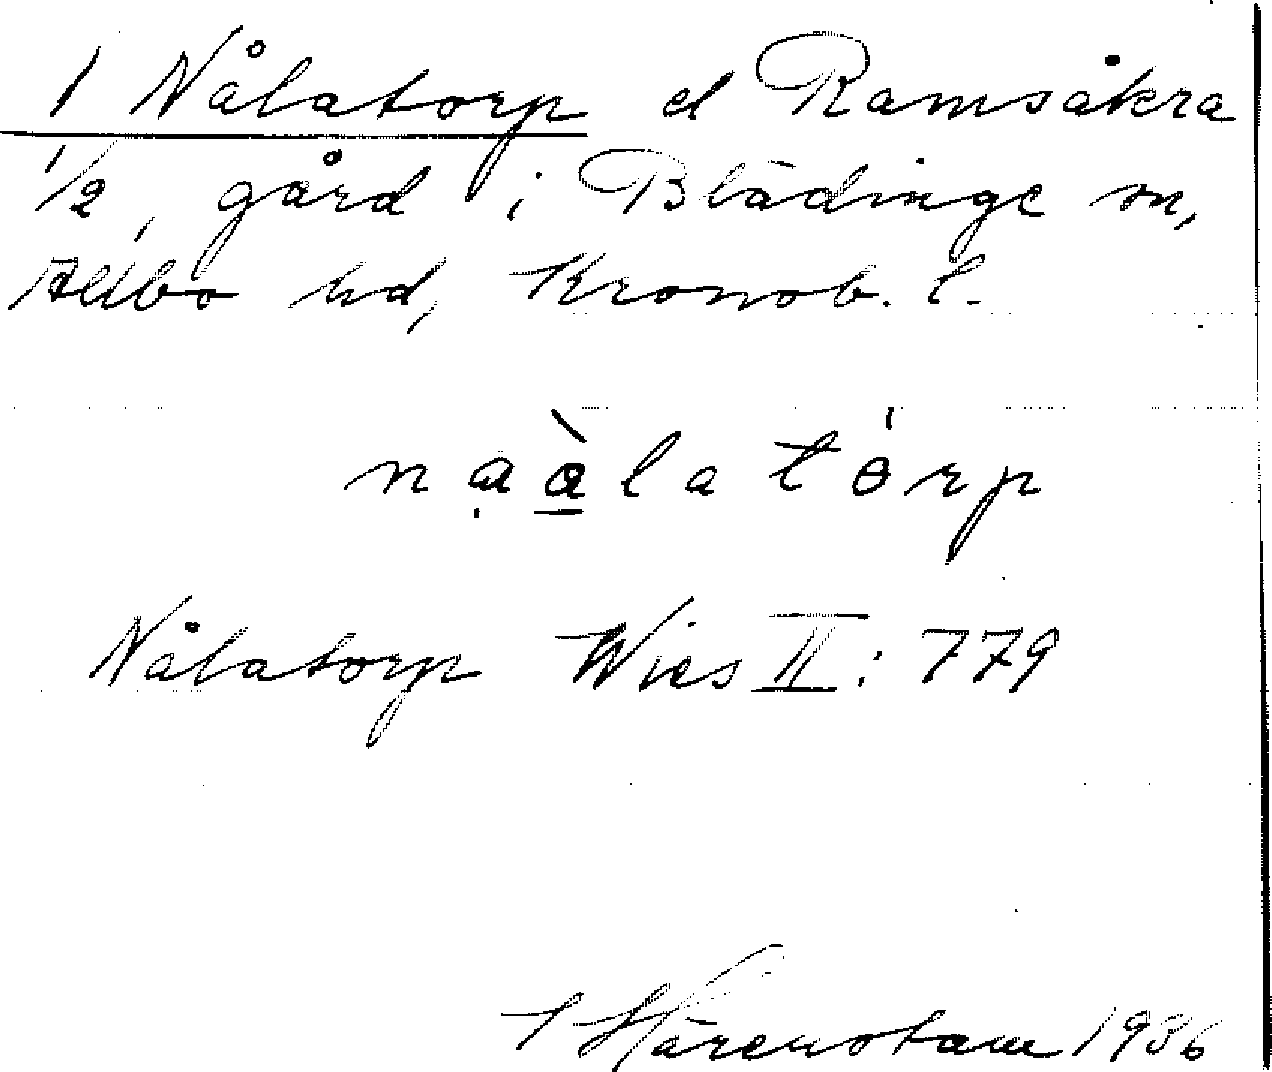 1 Nålatorp el Ramsåkra
1/2, gård i Blädinge sn,
Allbo hd, Kronob. l.
nạà̱latɵ́rp
Nålatorp Wies II: 779
Härenstam 1936